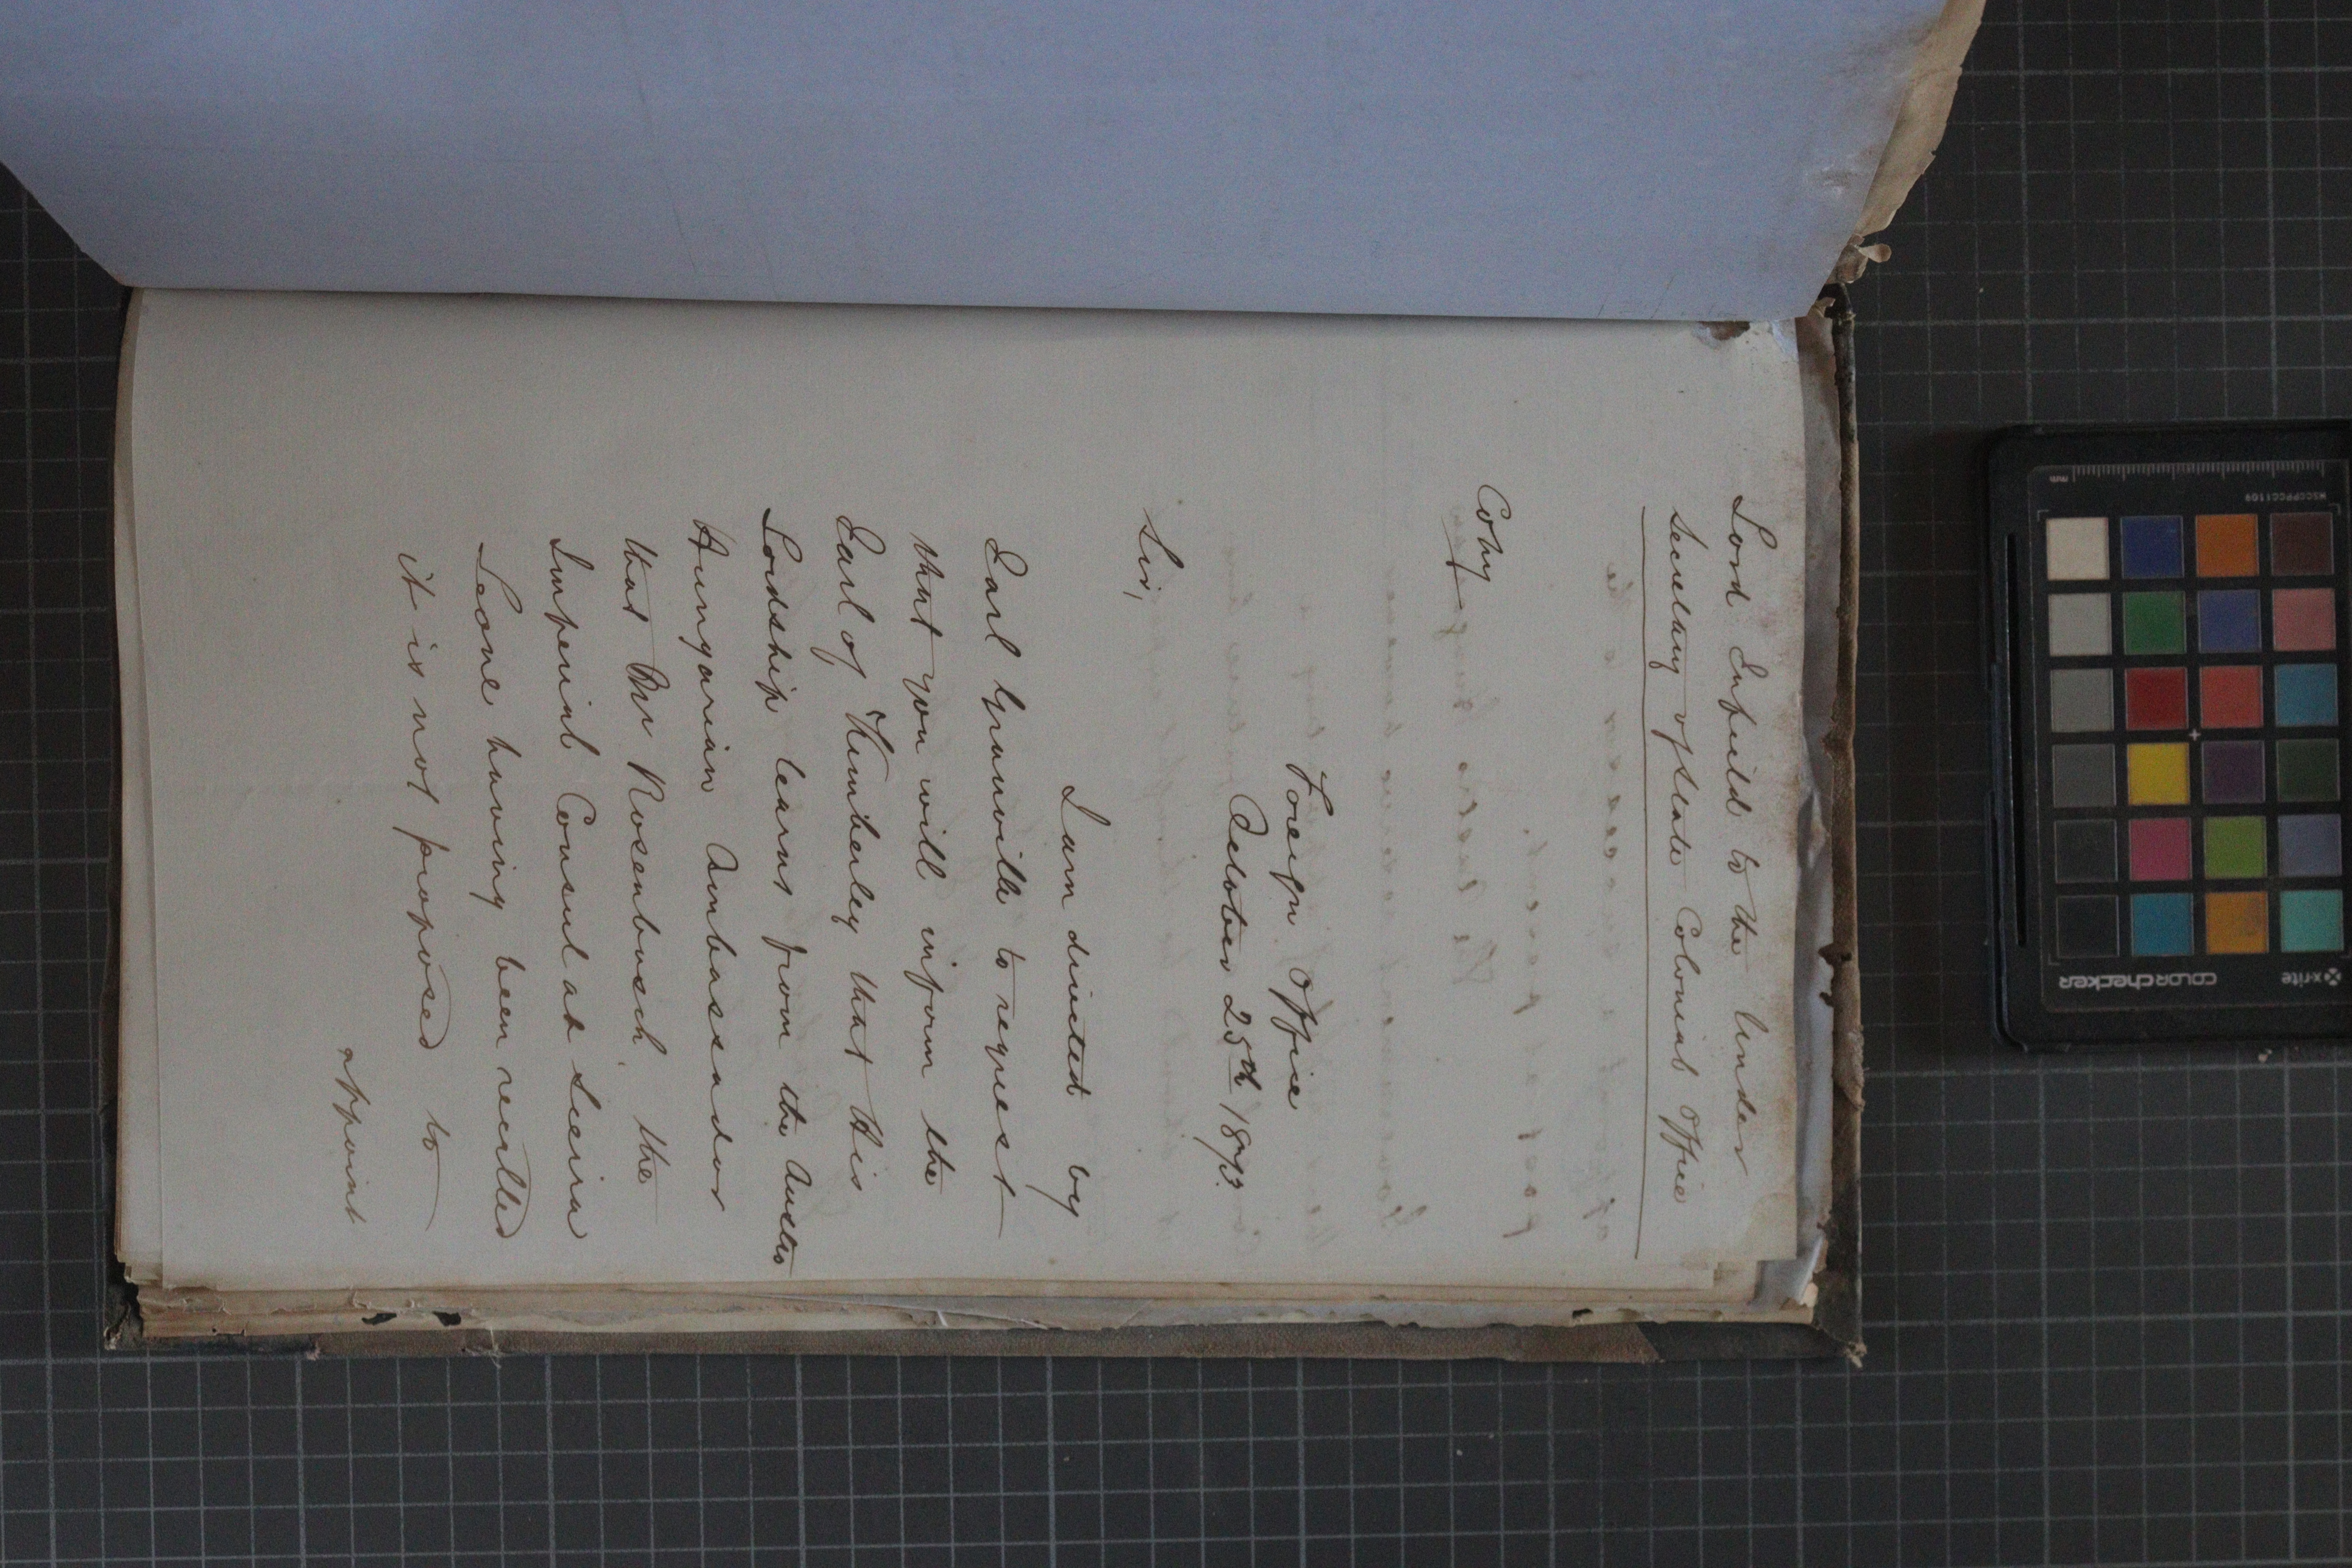 Lord Enfield to the Under
Secretary of State Colonial Office
Copy
Foreign Office
October 25th 1873.
Sir,
I am directed by
Earl Granville to request
that you will inform the
Earl of Kimberley that His
Lordship learns from the Austro
Hungarian Ambassador
that Mr Rosenbusch the
Imperial Consul at Sierra
Leone having been recalled
it is not proposed to
appoint
mm
MSCCPPCC1109
x-rite
colorchecker